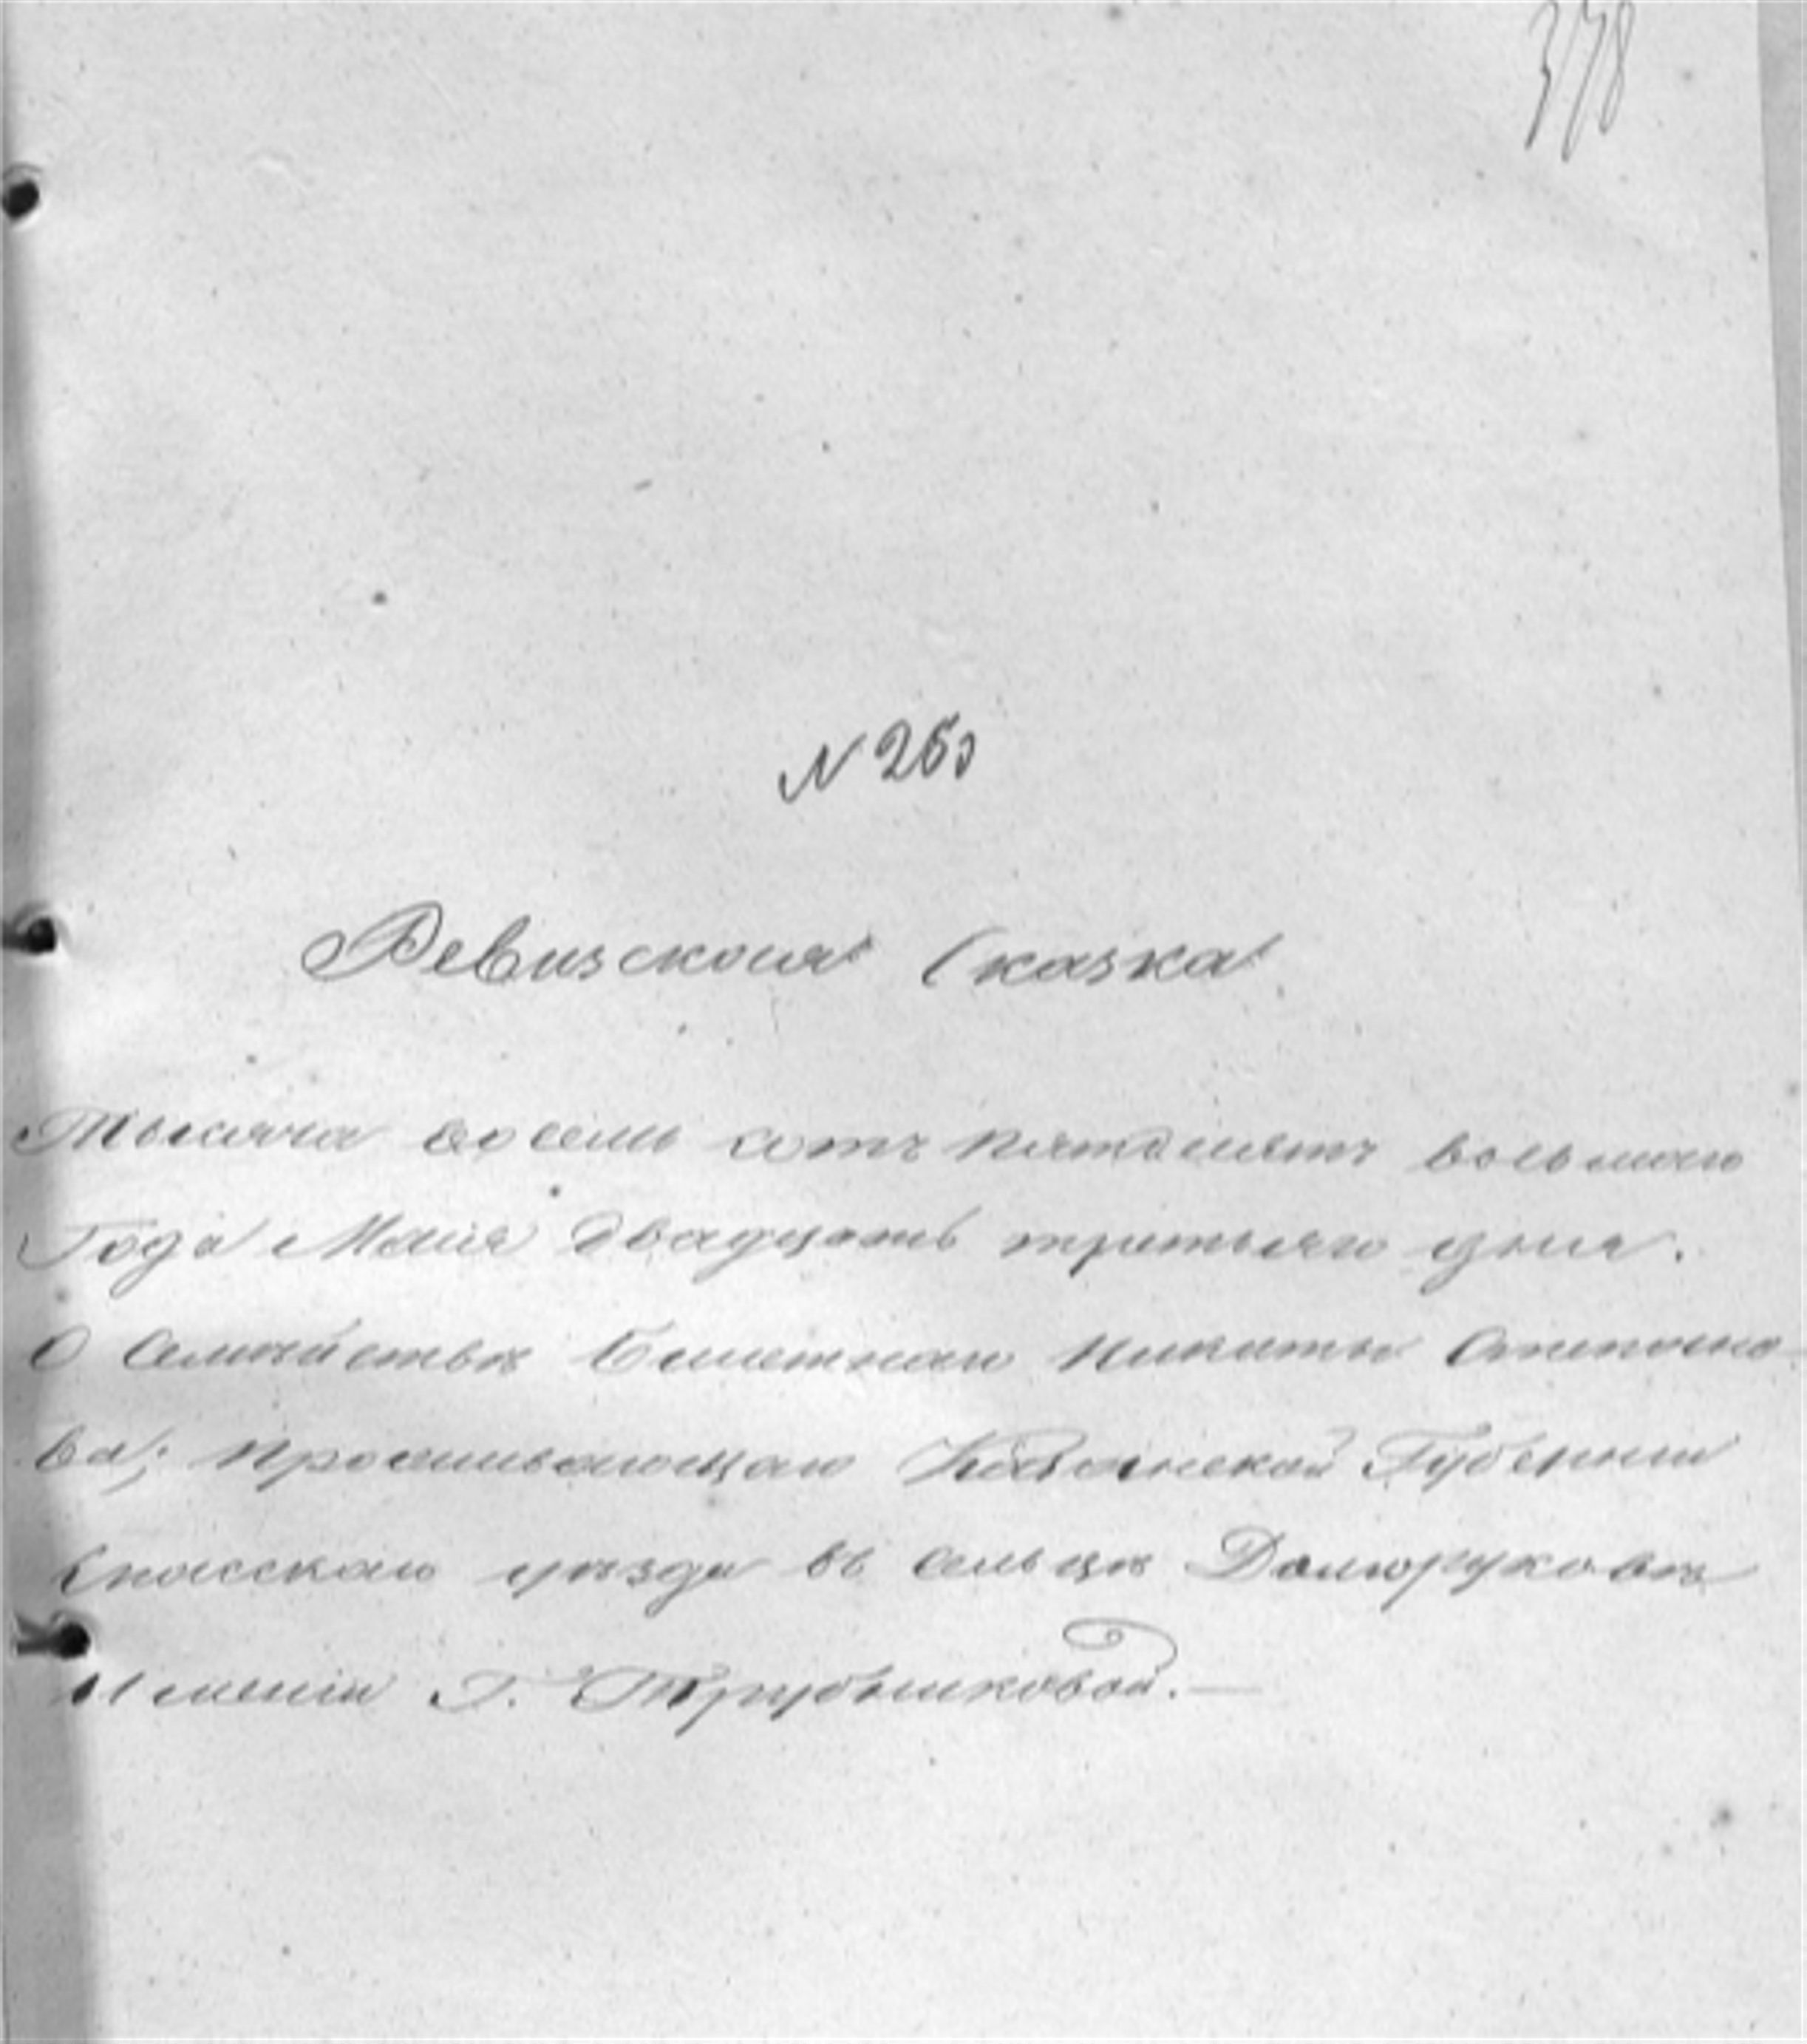 378
N 253
Ревизская Сказка
Тысяча восемь сотъ пятдесятъ восьмаго
Года Маия двадцать третьяго дня.
О Семействѣ Билетнаго Никиты Степано-
ва; проживающаго Казанской Губернии
Спасскаго уѣзда въ сельцѣ Долгоруковкѣ
Имении Г. Трубниковой.—